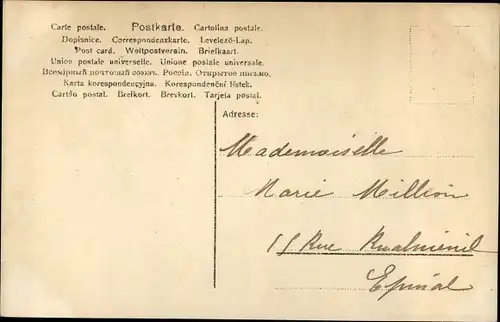 Carte postale. Postkarte. Cartolina postale.
Dopisnice. Correspondenzkarte. Levelező-Lap.
Post card. Weltpostverein. Briefkaart.
Union postale universelle. Unione postale universale.
Всемірный почтовый союз. Россія. Открытое письмо.
Karta korespondencyjna. Korespondenční lístek.
Cartão postal. Brefkort. Brevkort. Tarjeta postal.
Adresse:
Mademoiselle
Marie Million
11 Rue Rualménil
Epinal